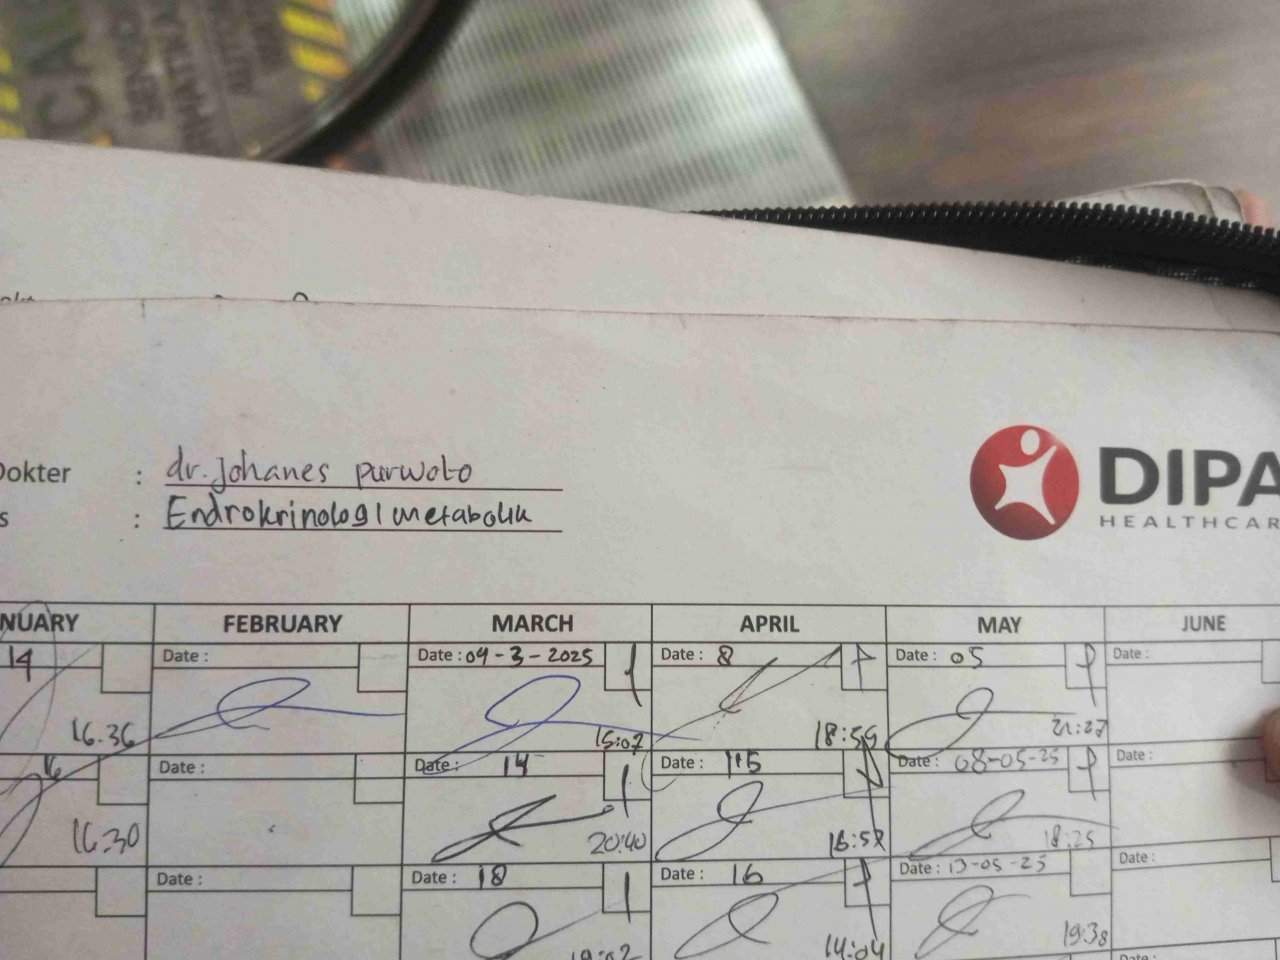 Dokter : dr. Johanes purwoto
s : Endrokrinologi metabolik
DIPA
HEALTHCAR
NUARY FEBRUARY MARCH APRIL MAY JUNE
14 Date : Date : 04-3-2025 Date : 8 Date : 05 Date :
16.36 15:07 18:59 21:27
16 Date : Date : 14 Date : 15 Date : 08-05-25 Date :
16.30 20:40 16:57 18:25
Date : Date : 18 Date : 16 Date : 13-05-25 Date :
19:02 14:04 19:38